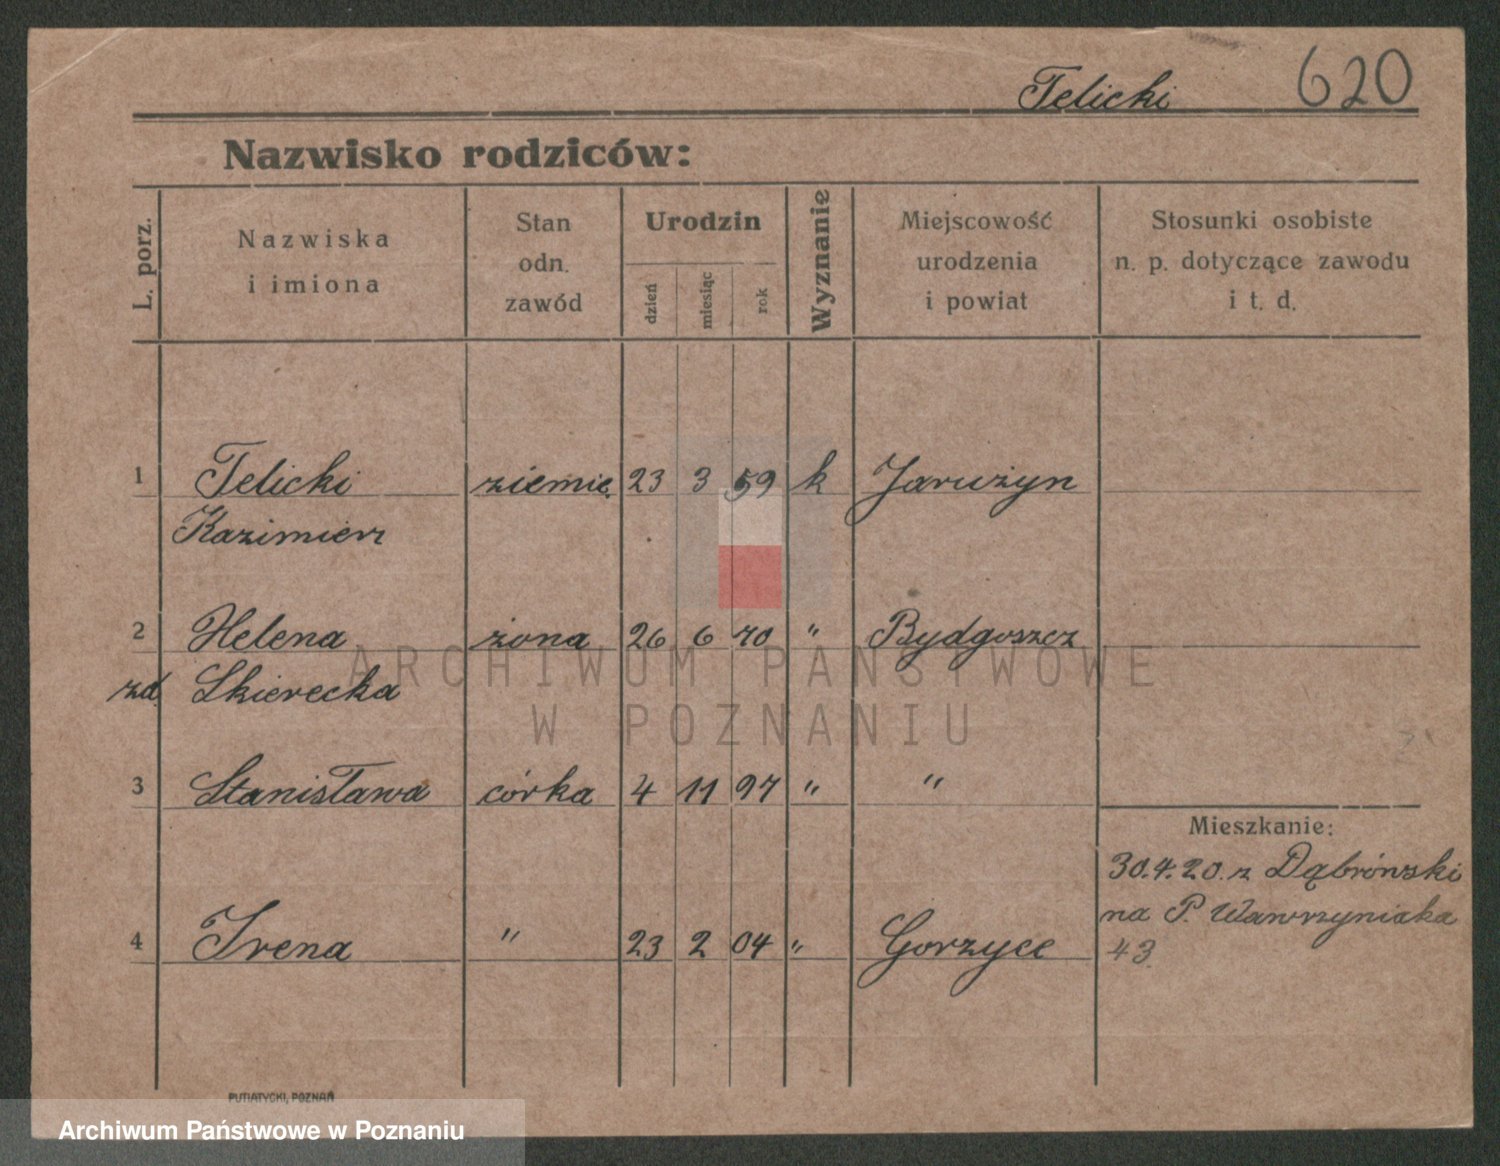 Telicki 620
Nazwisko rodziców:
L. porz.
Nazwiska
i imiona
Stan
odn.
zawód
Urodzin
dzień
miesiąc
rok
Wyznanie
Miejscowość
urodzenia
i powiat
Stosunki osobiste
n. p. dotyczące zawodu
i t. d.
1 Telicki ziemie. 23 3 59 k Jarużyn
Kazimierz
2 Helena żona 26 6 70 " Bydgoszcz
zd. Skierecka
ARCHIWUM PAŃSTWOWE
W POZNANIU
3 Stanisława córka 4 11 97 " "
Mieszkanie:
30.4.20. z Dąbrówski
na P. Wawrzyniaka
4 Irena " 23 2 04 " Gorzyce 43.
PUTIATYCKI, POZNAŃ
Archiwum Państwowe w Poznaniu